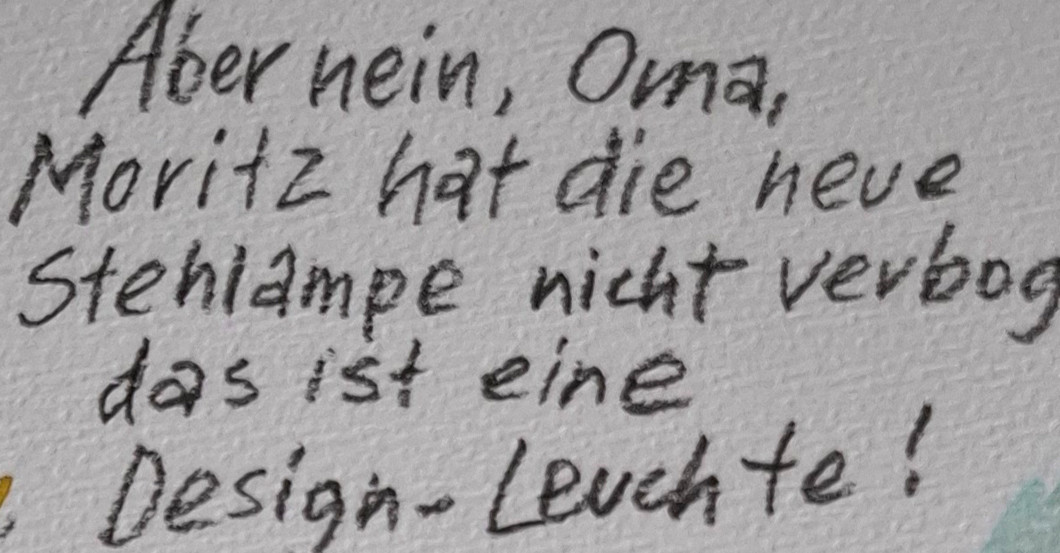 Aber nein, Oma,
Moritz hat die neue
Stehlampe nicht verbog
das ist eine
Design-Leuchte!